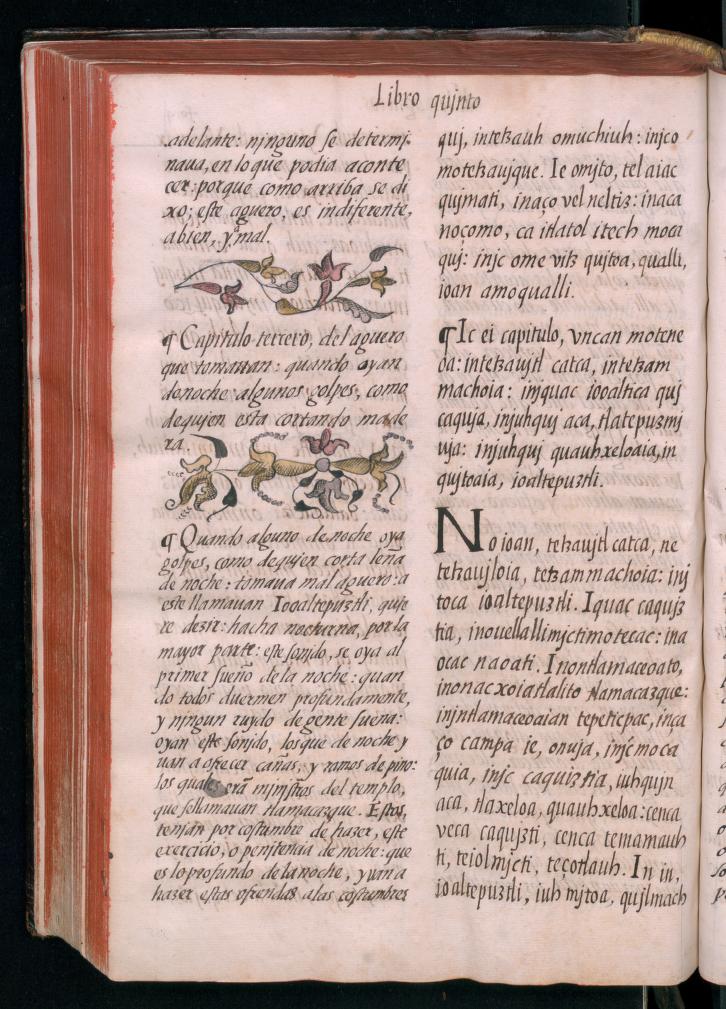 Libro qujnto
adelante: njnguno se determj-
naua, en lo que podia aconte
cer: porque como arriba se di
xo; este aguero, es indiferente,
a bien, y a mal.
¶ Capitulo tercero, del aguero
que tomauan: quando oyan
de noche algunos golpes, como
de quien esta cortando made
ra.
¶ Quando alguno de noche oya
golpes, como de quien corta leña
de noche: tomaua mal aguero: a
este llamauan Iooaltepuztli, quie
re dezir: hacha nocturna, por la
mayor parte: este sonjdo, se oya al
primer sueño de la noche: quan
do todos duermen profundamente,
y njngun ruydo de gente suena:
oyan este sonjdo, los que de noche y
uan a ofrecer cañas, y ramos de pino:
los quales erã mjnjstros del templo,
que se llamauan tlamacazque. Estos,
tenjan por costumbre de hazer, este
exercicio, o penjtencia de noche: que
es lo profundo de la noche, y yuan a
hazer estas ofrendas a las costumbres
quj, intetzauh omuchiuh: injco
motetzaujque. Ie omjto, tel aiac
qujmati, inaço vel neltiz: inaca
noçomo, ca itlatol itech moca
quj: injc ome vitz qujtoa, qualli,
ioan amo qualli.
¶ Ic ei capitulo, vncan motene
oa: intetzaujtl catca, intetzam
machoia: injquac iooaltica quj
caquja, injuhquj aca, tlatepuzmj
uja: injuhquj quauhxeloaia, in
qujtoaia, ioaltepuztli.
No ioan, tetzaujtl catca, ne
tetzaujloia, tetzammachoia: inj
toca ioaltepuztli. Iquac caqujz
tia, inouellallimjctimotecac: ina
ocac naoati. Inontlamaceoato,
inonacxoiatlalito tlamacazque:
injntlamaceoaian tepeticpac, inça
ço campa ie, onuja, injc moca
quia, injc caquiztia, iuhqujn
aca, tlaxeloa, quauhxeloa: cenca
veca caqujzti, cenca temamauh
ti, teiolmjcti, teçotlauh. In in,
ioaltepuztli, iuh mjtoa, qujlmach